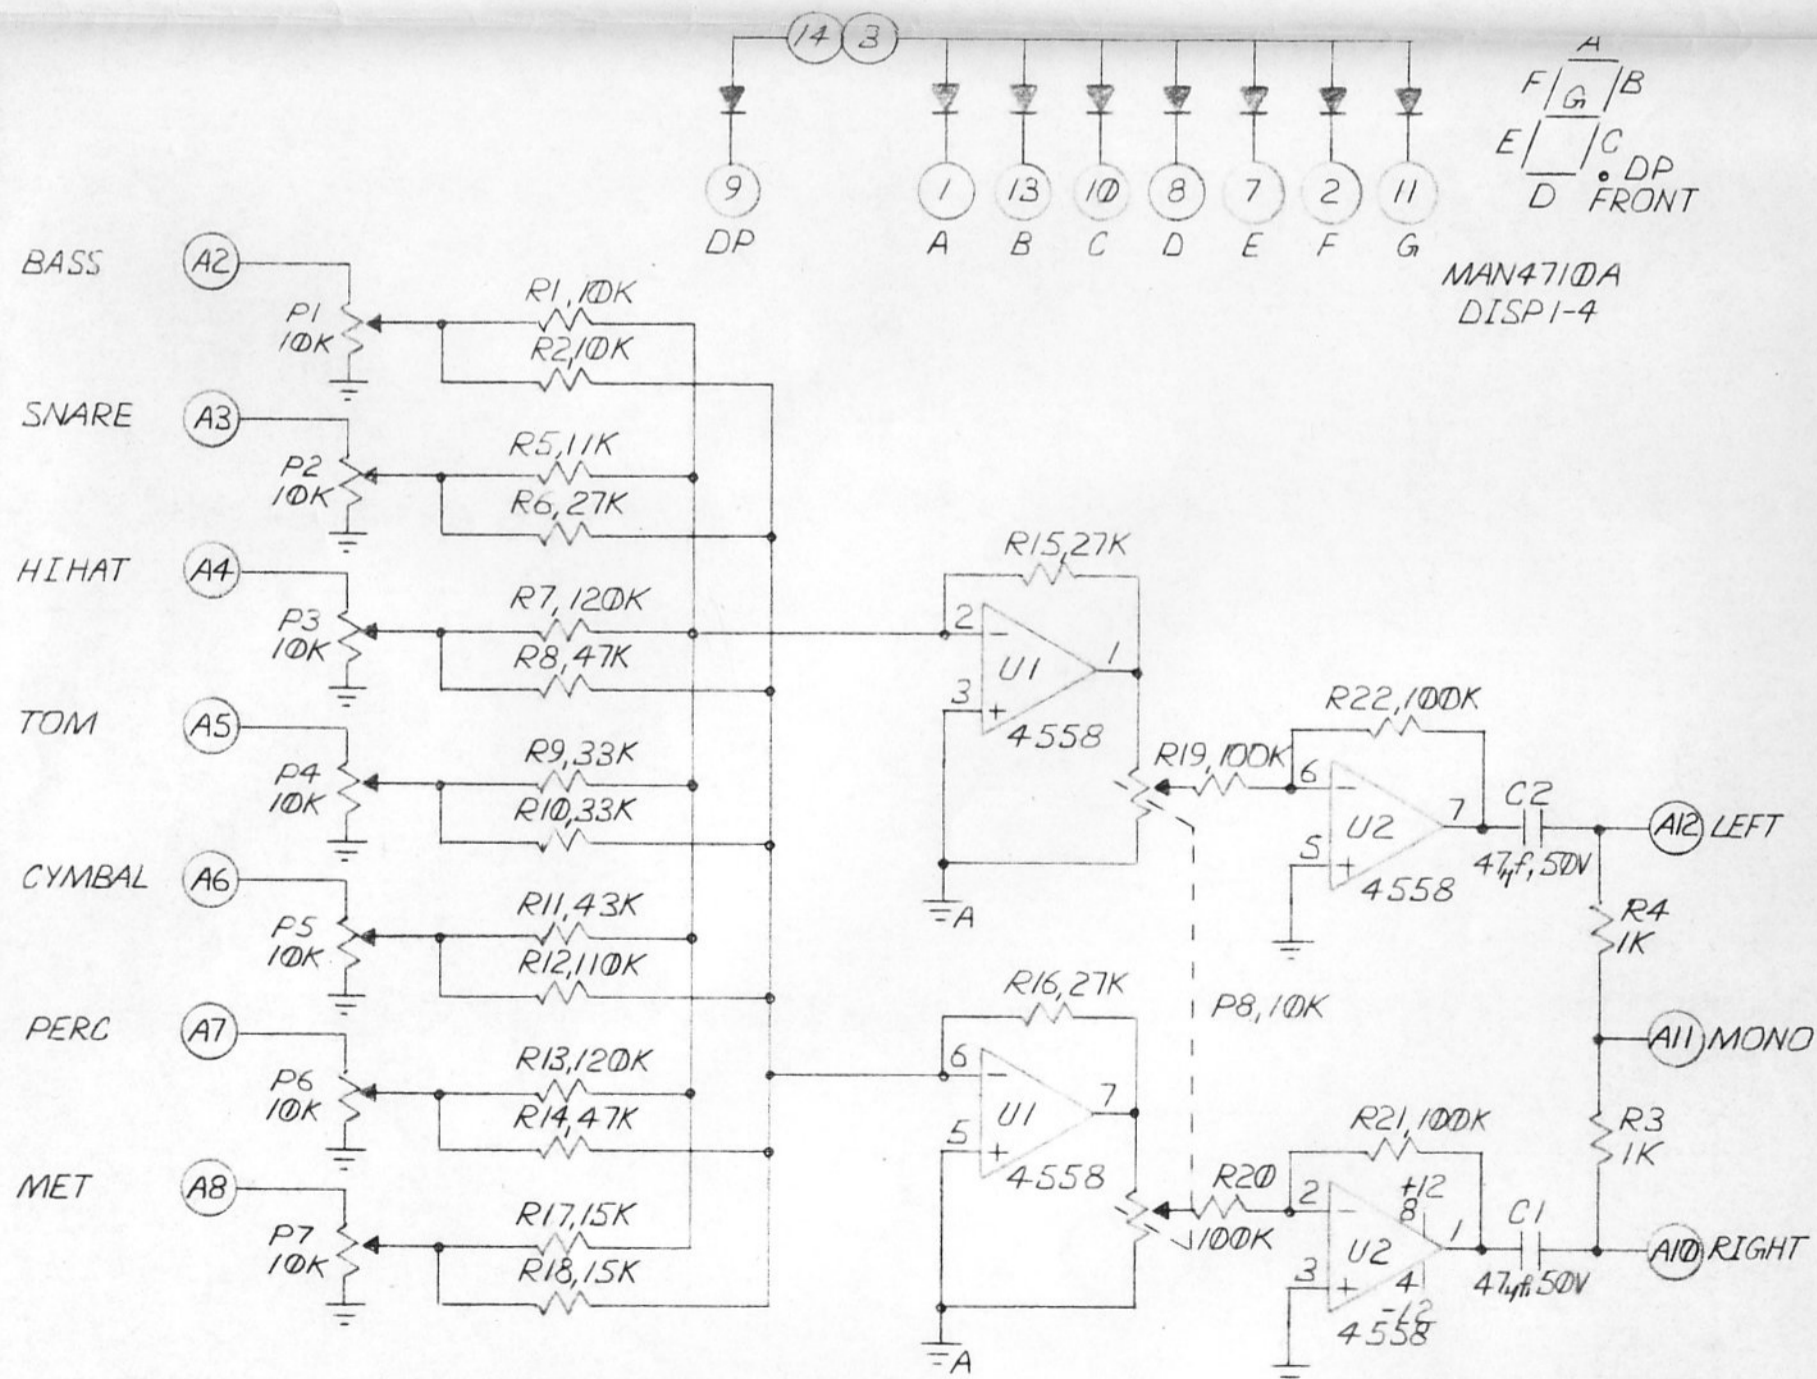 14 3
A
F G B
E C
DP
D FRONT
9 1 13 10 8 7 2 11
DP A B C D E F G
MAN4710A
DISP1-4
BASS A2
P1
10K
R1,10K
R2,10K
SNARE A3
P2
10K
R5,11K
R6,27K
HIHAT A4
P3
10K
R7,120K
R8,47K
TOM A5
P4
10K
R9,33K
R10,33K
CYMBAL A6
P5
10K
R11,43K
R12,110K
PERC A7
P6
10K
R13,120K
R14,47K
MET A8
P7
10K
R17,15K
R18,15K
R15,27K
2 -
U1 1
3 +
4558
A
R19,100K
R22,100K
6 -
U2 7
5 +
4558
C2
47µf,50V
A12 LEFT
R4
1K
P8,10K
A11 MONO
R3
1K
R16,27K
6 -
U1 7
5 +
4558
A
R20
100K
R21,100K
2 - +12
8
U2 1
3 + 4
-12
4558
C1
47µf,50V
A10 RIGHT